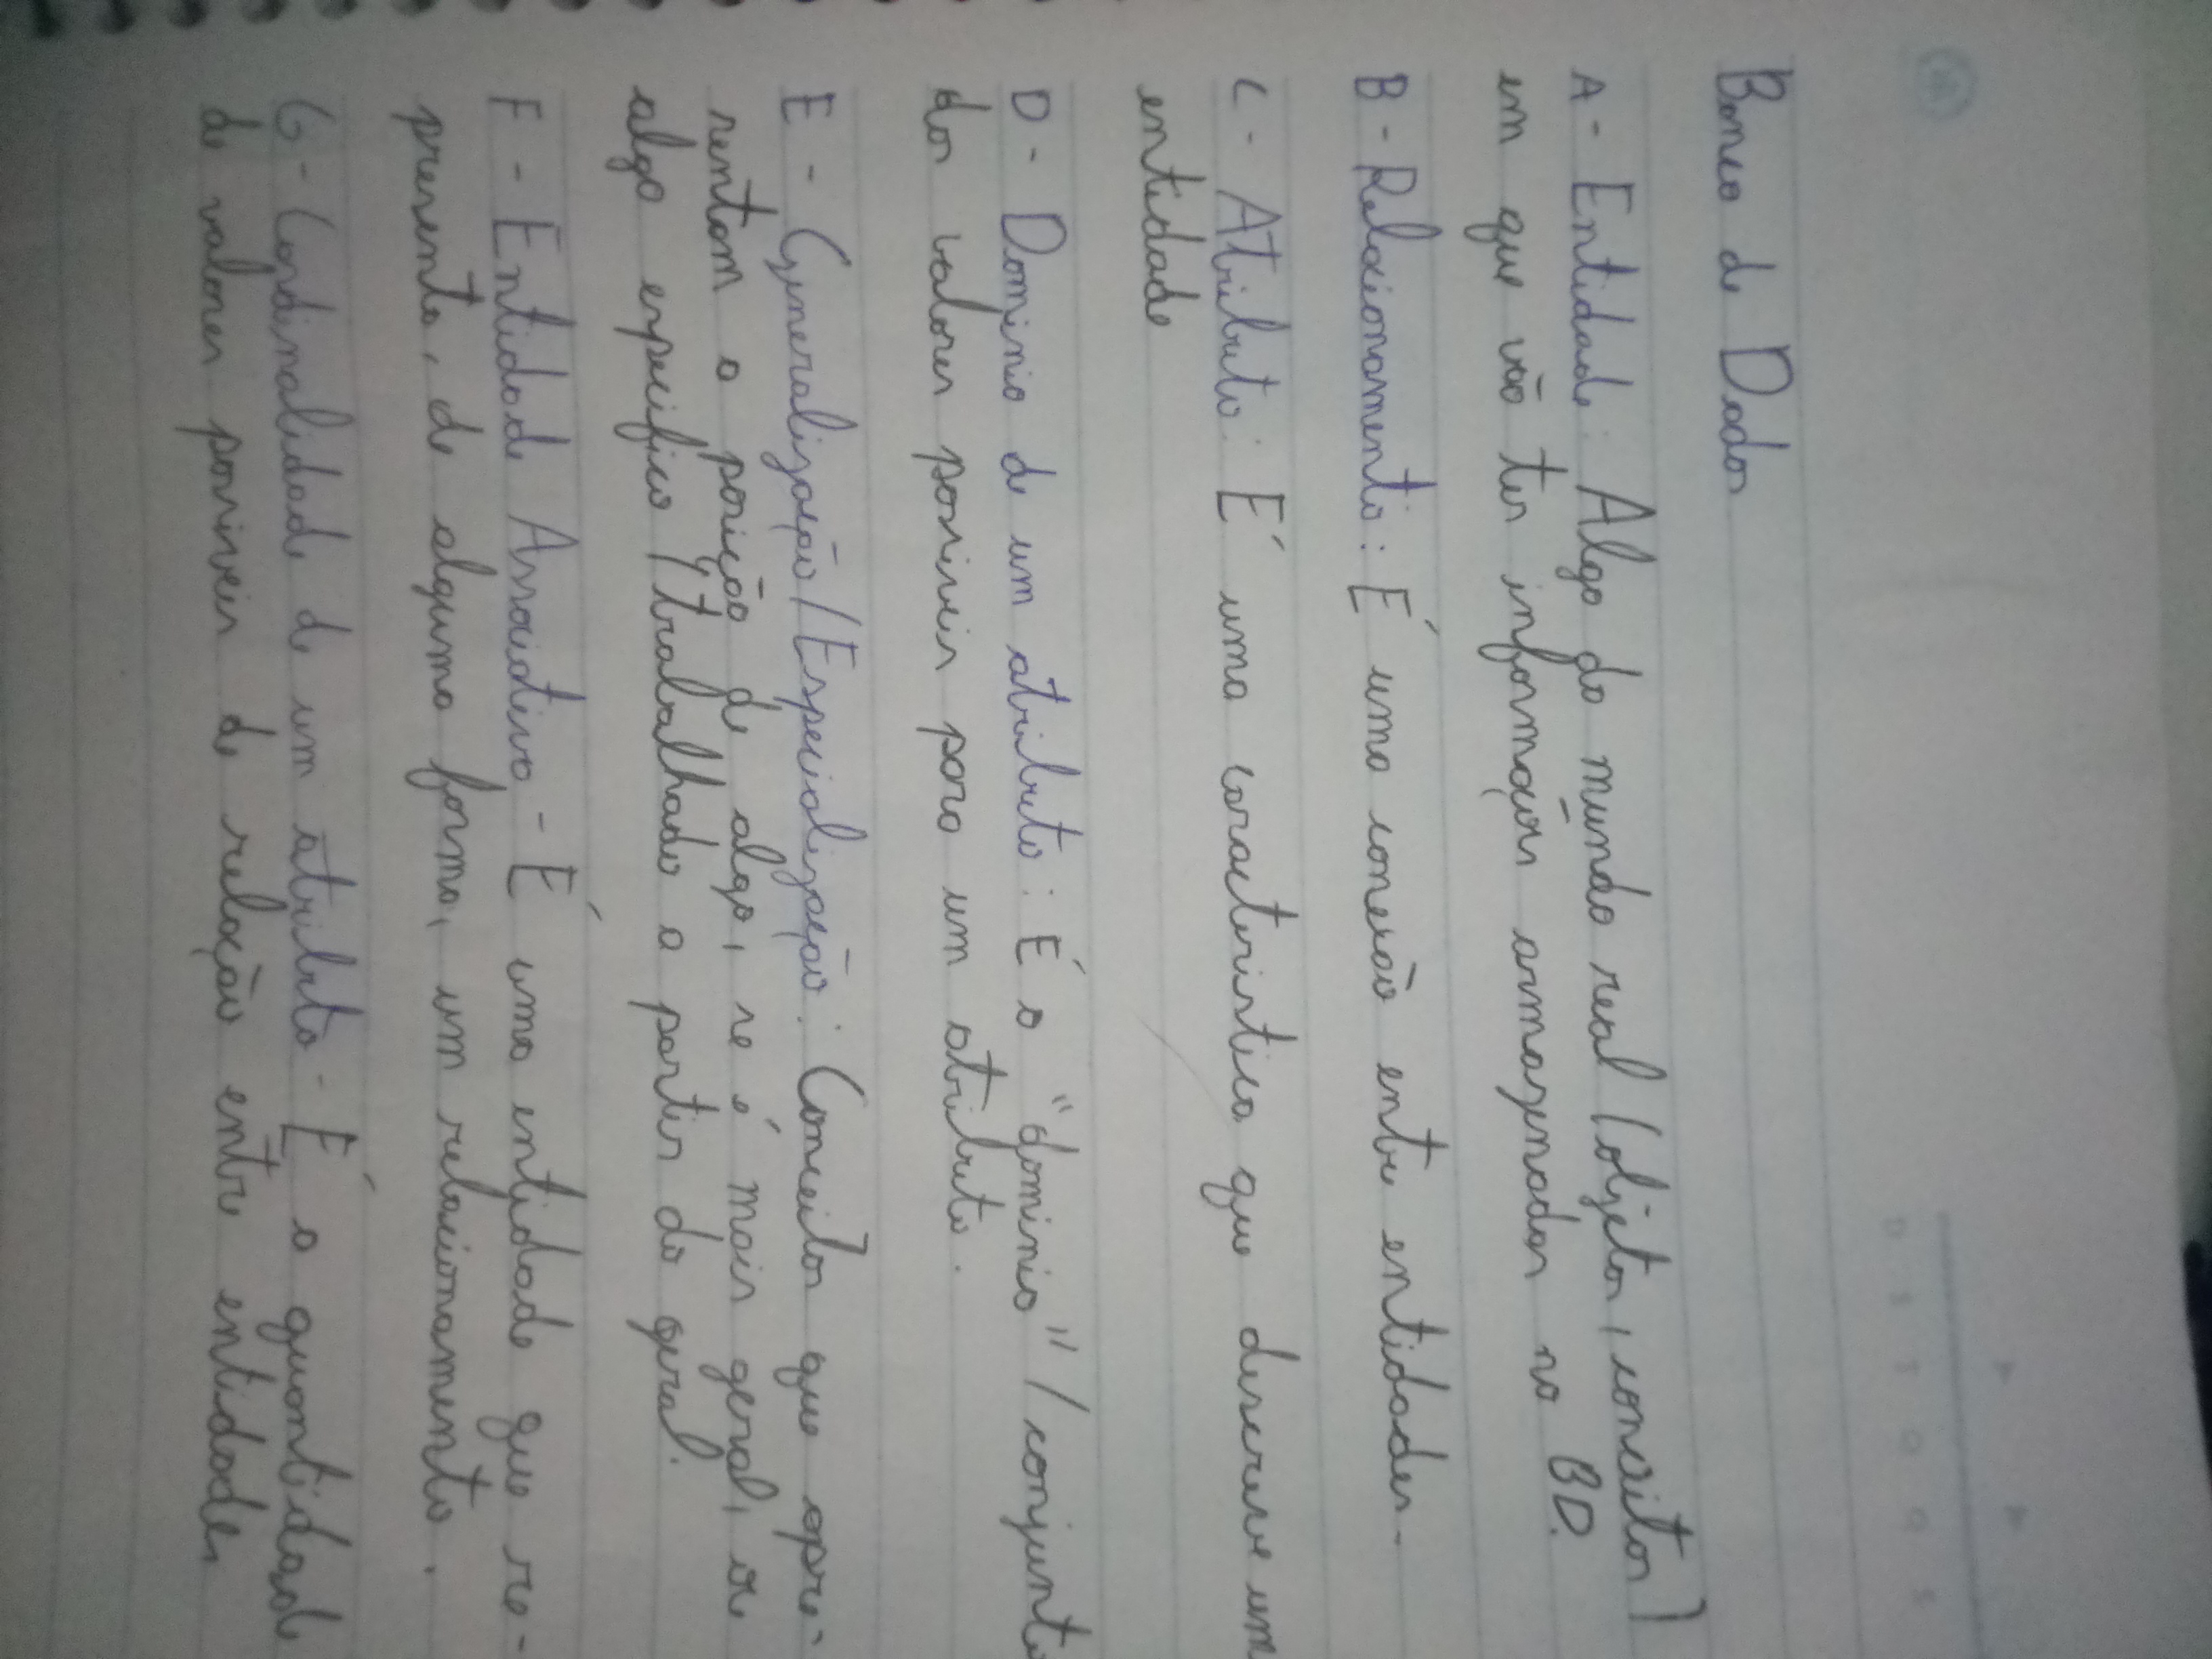 Banco de Dados
A - Entidade: Algo do mundo real (objetos, conceitos)
em que vão ter informações armazenadas no BD.
B - Relacionamento: É uma conexão entre entidades.
C - Atributo: É uma caracteristica que descreve um
entidade
D - Dominio de um atributo: É o "dominio" / conjunto
dos valores possiveis para um atributo.
E - Generalização/Especialização: Conceitos que apre-
sentam a posição de algo, se é mais geral, ou
algo especifico / trabalhado a partir do geral.
F - Entidade Associativa - É uma entidade que re-
presenta, de alguma forma, um relacionamento.
G - Cardinalidade de um atributo - É a quantidade
de valores possiveis de relação entre entidades